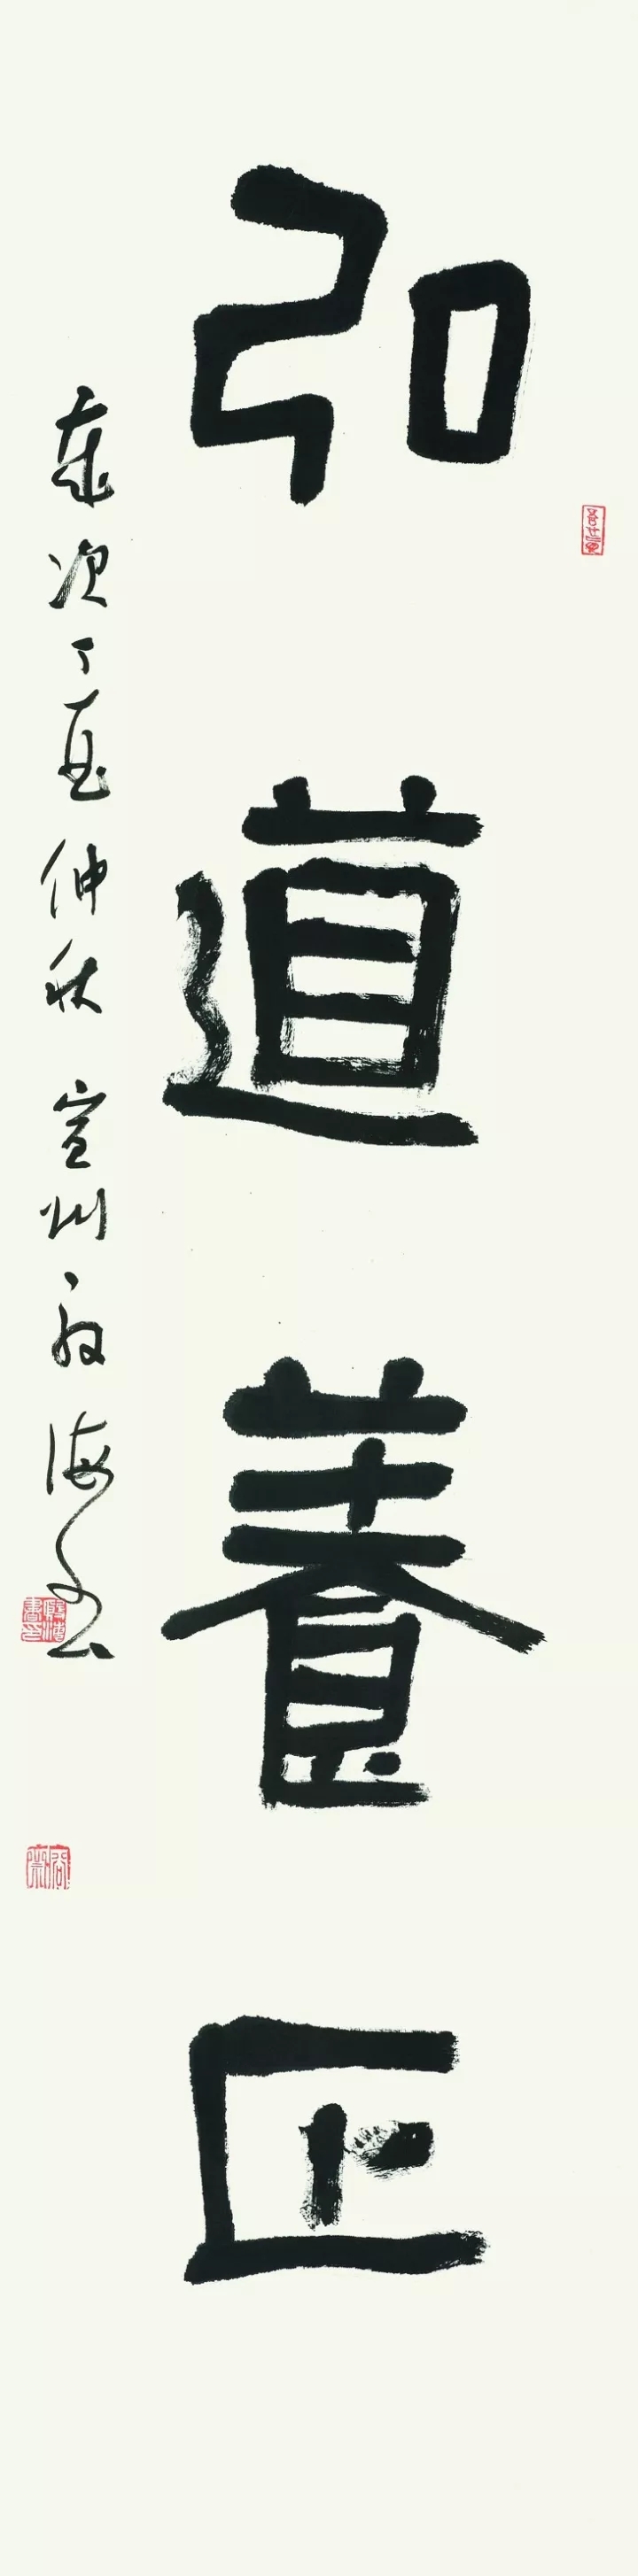 弘道養正
歲次丁酉仲秋宣州海书